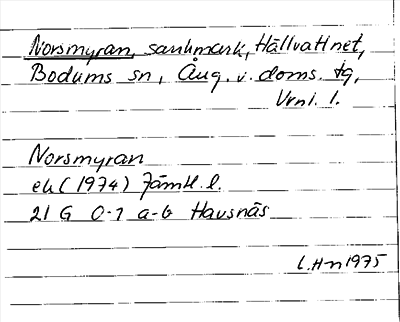 Norsmyran, sankmark, Hällvattnet,
Bodums sn, Ång. v. doms. tg,
Vrnl. l.
Norsmyran
ek (1974) Jämtl. l.
21 G 0-1 a-b Havsnäs
L.Hn 1975